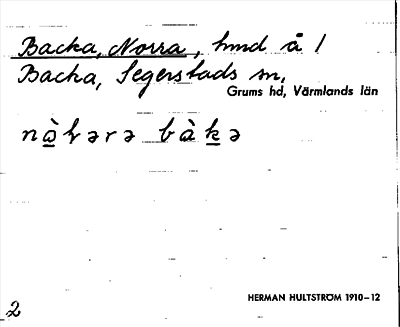 Backa, Norra, hmd å 1
Backa, Segerstads sn,
Grums hd, Värmlands län
bàkə
HERMAN HULTSTRÖM 1910–12
2